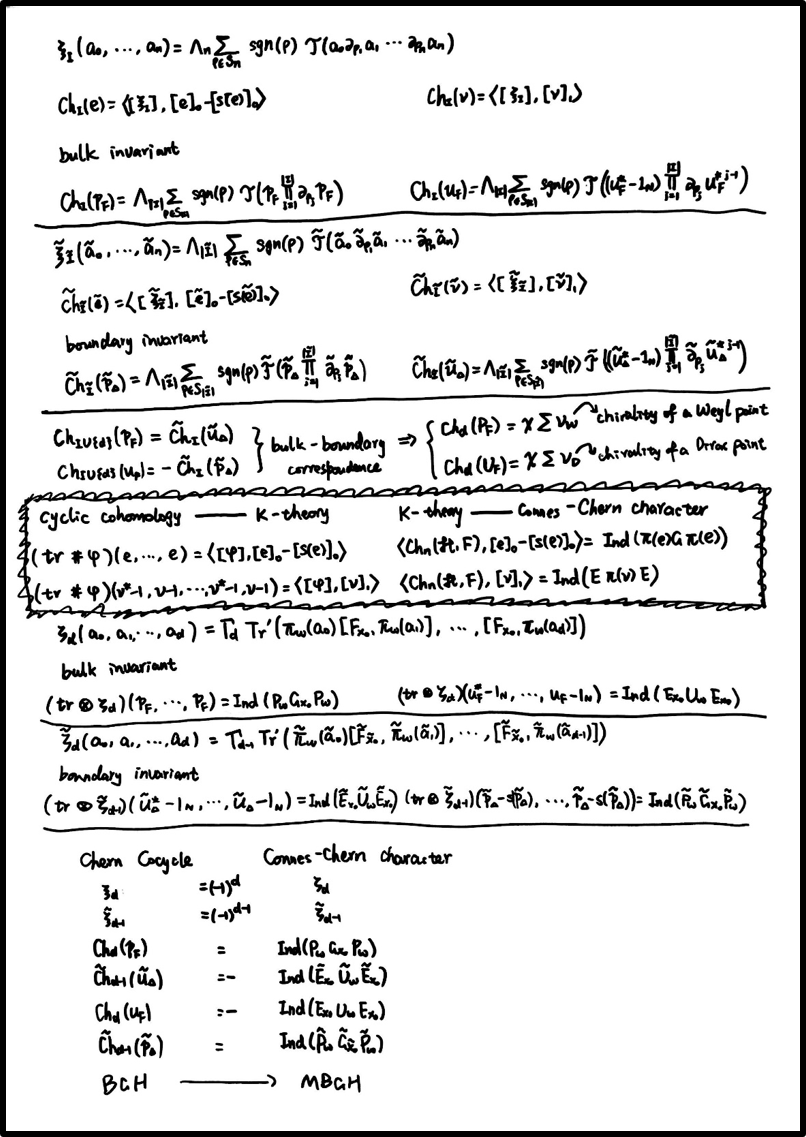 ξ_I(a₀, ⋯, aₙ) = Λₙ ∑_{ρ∈Sₙ} sgn(ρ) 𝒯(a₀∂_{ρ₁}a₁ ⋯ ∂_{ρₙ}aₙ)
Ch_I(e) = ⟨[ξ_I], [e]₀-[s(e)]₀⟩ Ch_I(v) = ⟨[ξ_I], [v]₁⟩
bulk invariant
Ch_I(P_F) = Λ_{|I|} ∑_{ρ∈S_{|I|}} sgn(ρ) 𝒯(P_F ∏_{j=1}^{|I|} ∂_{ρ_j} P_F) Ch_I(U_F) = Λ_{|I|} ∑_{ρ∈S_{|I|}} sgn(ρ) 𝒯((U_F^*-1_N) ∏_{j=1}^{|I|} ∂_{ρ_j} U_F^{* j-1})
ξ̃_Ĩ(ã₀, ⋯, ãₙ) = Λ_{|Ĩ|} ∑_{ρ∈Sₙ} sgn(ρ) 𝒯̃(ã₀ ∂̃_{ρ₁}ã₁ ⋯ ∂̃_{ρₙ}ãₙ)
C̃h_Ĩ(ẽ) = ⟨[ξ̃_Ĩ], [ẽ]₀-[s(ẽ)]₀⟩ C̃h_Ĩ(ṽ) = ⟨[ξ̃_Ĩ], [ṽ]₁⟩
boundary invariant
C̃h_Ĩ(P̃_Δ) = Λ_{|Ĩ|} ∑_{ρ∈S_{|Ĩ|}} sgn(ρ) 𝒯̃(P̃_Δ ∏_{j=1}^{|Ĩ|} ∂̃_{ρ_j} P̃_Δ) C̃h_Ĩ(Ũ_Δ) = Λ_{|Ĩ|} ∑_{ρ∈S_{|Ĩ|}} sgn(ρ) 𝒯̃((Ũ_Δ^*-1_N) ∏_{j=1}^{|Ĩ|} ∂̃_{ρ_j} Ũ_Δ^{* j-1})
Ch_{I∪{d}}(P_F) = C̃h_I(Ũ_Δ) } bulk-boundary ⇒ { Ch_d(P_F) = χ ∑ ν_W chirality of a Weyl point
Ch_{I∪{d}}(U_F) = - C̃h_I(P̃_Δ) correspondence Ch_d(U_F) = χ ∑ ν_D chirality of a Dirac point
Cyclic cohomology —— K-theory K-theory —— Connes-Chern character
(tr # φ)(e, ⋯, e) = ⟨[φ], [e]₀-[s(e)]₀⟩ ⟨Chₙ(ℋ, F), [e]₀-[s(e)]₀⟩ = Ind(π(e)Gπ(e))
(tr # φ)(v*-1, v-1, ⋯, v*-1, v-1) = ⟨[φ], [v]₁⟩ ⟨Chₙ(ℋ, F), [v]₁⟩ = Ind(E π(v) E)
ζ_d(a₀, a₁, ⋯, a_d) = Γ_d Tr'(π_ω(a₀)[F_{x₀}, π_ω(a₁)], ⋯, [F_{x₀}, π_ω(a_d)])
bulk invariant
(tr ⊗ ζ_d)(P_F, ⋯, P_F) = Ind(P_ω G_{x₀} P_ω) (tr ⊗ ζ_d)(U_F^*-1_N, ⋯, U_F-1_N) = Ind(E_{x₀} U_ω E_{x₀})
ζ̃_d(a₀, a₁, ⋯, a_d) = Γ_{d-1} Tr'(π̃_ω(ã₀)[F̃_{x̃₀}, π̃_ω(ã₁)], ⋯, [F̃_{x̃₀}, π̃_ω(ã_{d-1})])
boundary invariant
(tr ⊗ ζ̃_{d-1})(Ũ_Δ^*-1_N, ⋯, Ũ_Δ-1_N) = Ind(Ẽ_{x₀}Ũ_ωẼ_{x₀}) (tr ⊗ ζ̃_{d-1})(P̃_Δ-s(P̃_Δ), ⋯, P̃_Δ-s(P̃_Δ)) = Ind(P̃_ω G̃_{x₀} P̃_ω)
Chern Cocycle Connes-Chern character
ξ_d =(-1)^d ζ_d
ξ̃_{d-1} =(-1)^{d-1} ζ̃_{d-1}
Ch_d(P_F) = Ind(P_ω G_{x₀} P_ω)
C̃h_{d-1}(Ũ_Δ) =- Ind(Ẽ_{x₀} Ũ_ω Ẽ_{x₀})
Ch_d(U_F) =- Ind(E_{x₀} U_ω E_{x₀})
C̃h_{d-1}(P̃_Δ) = Ind(P̃_ω G̃_{x̃₀} P̃_ω)
BGH ⟶ MBGH